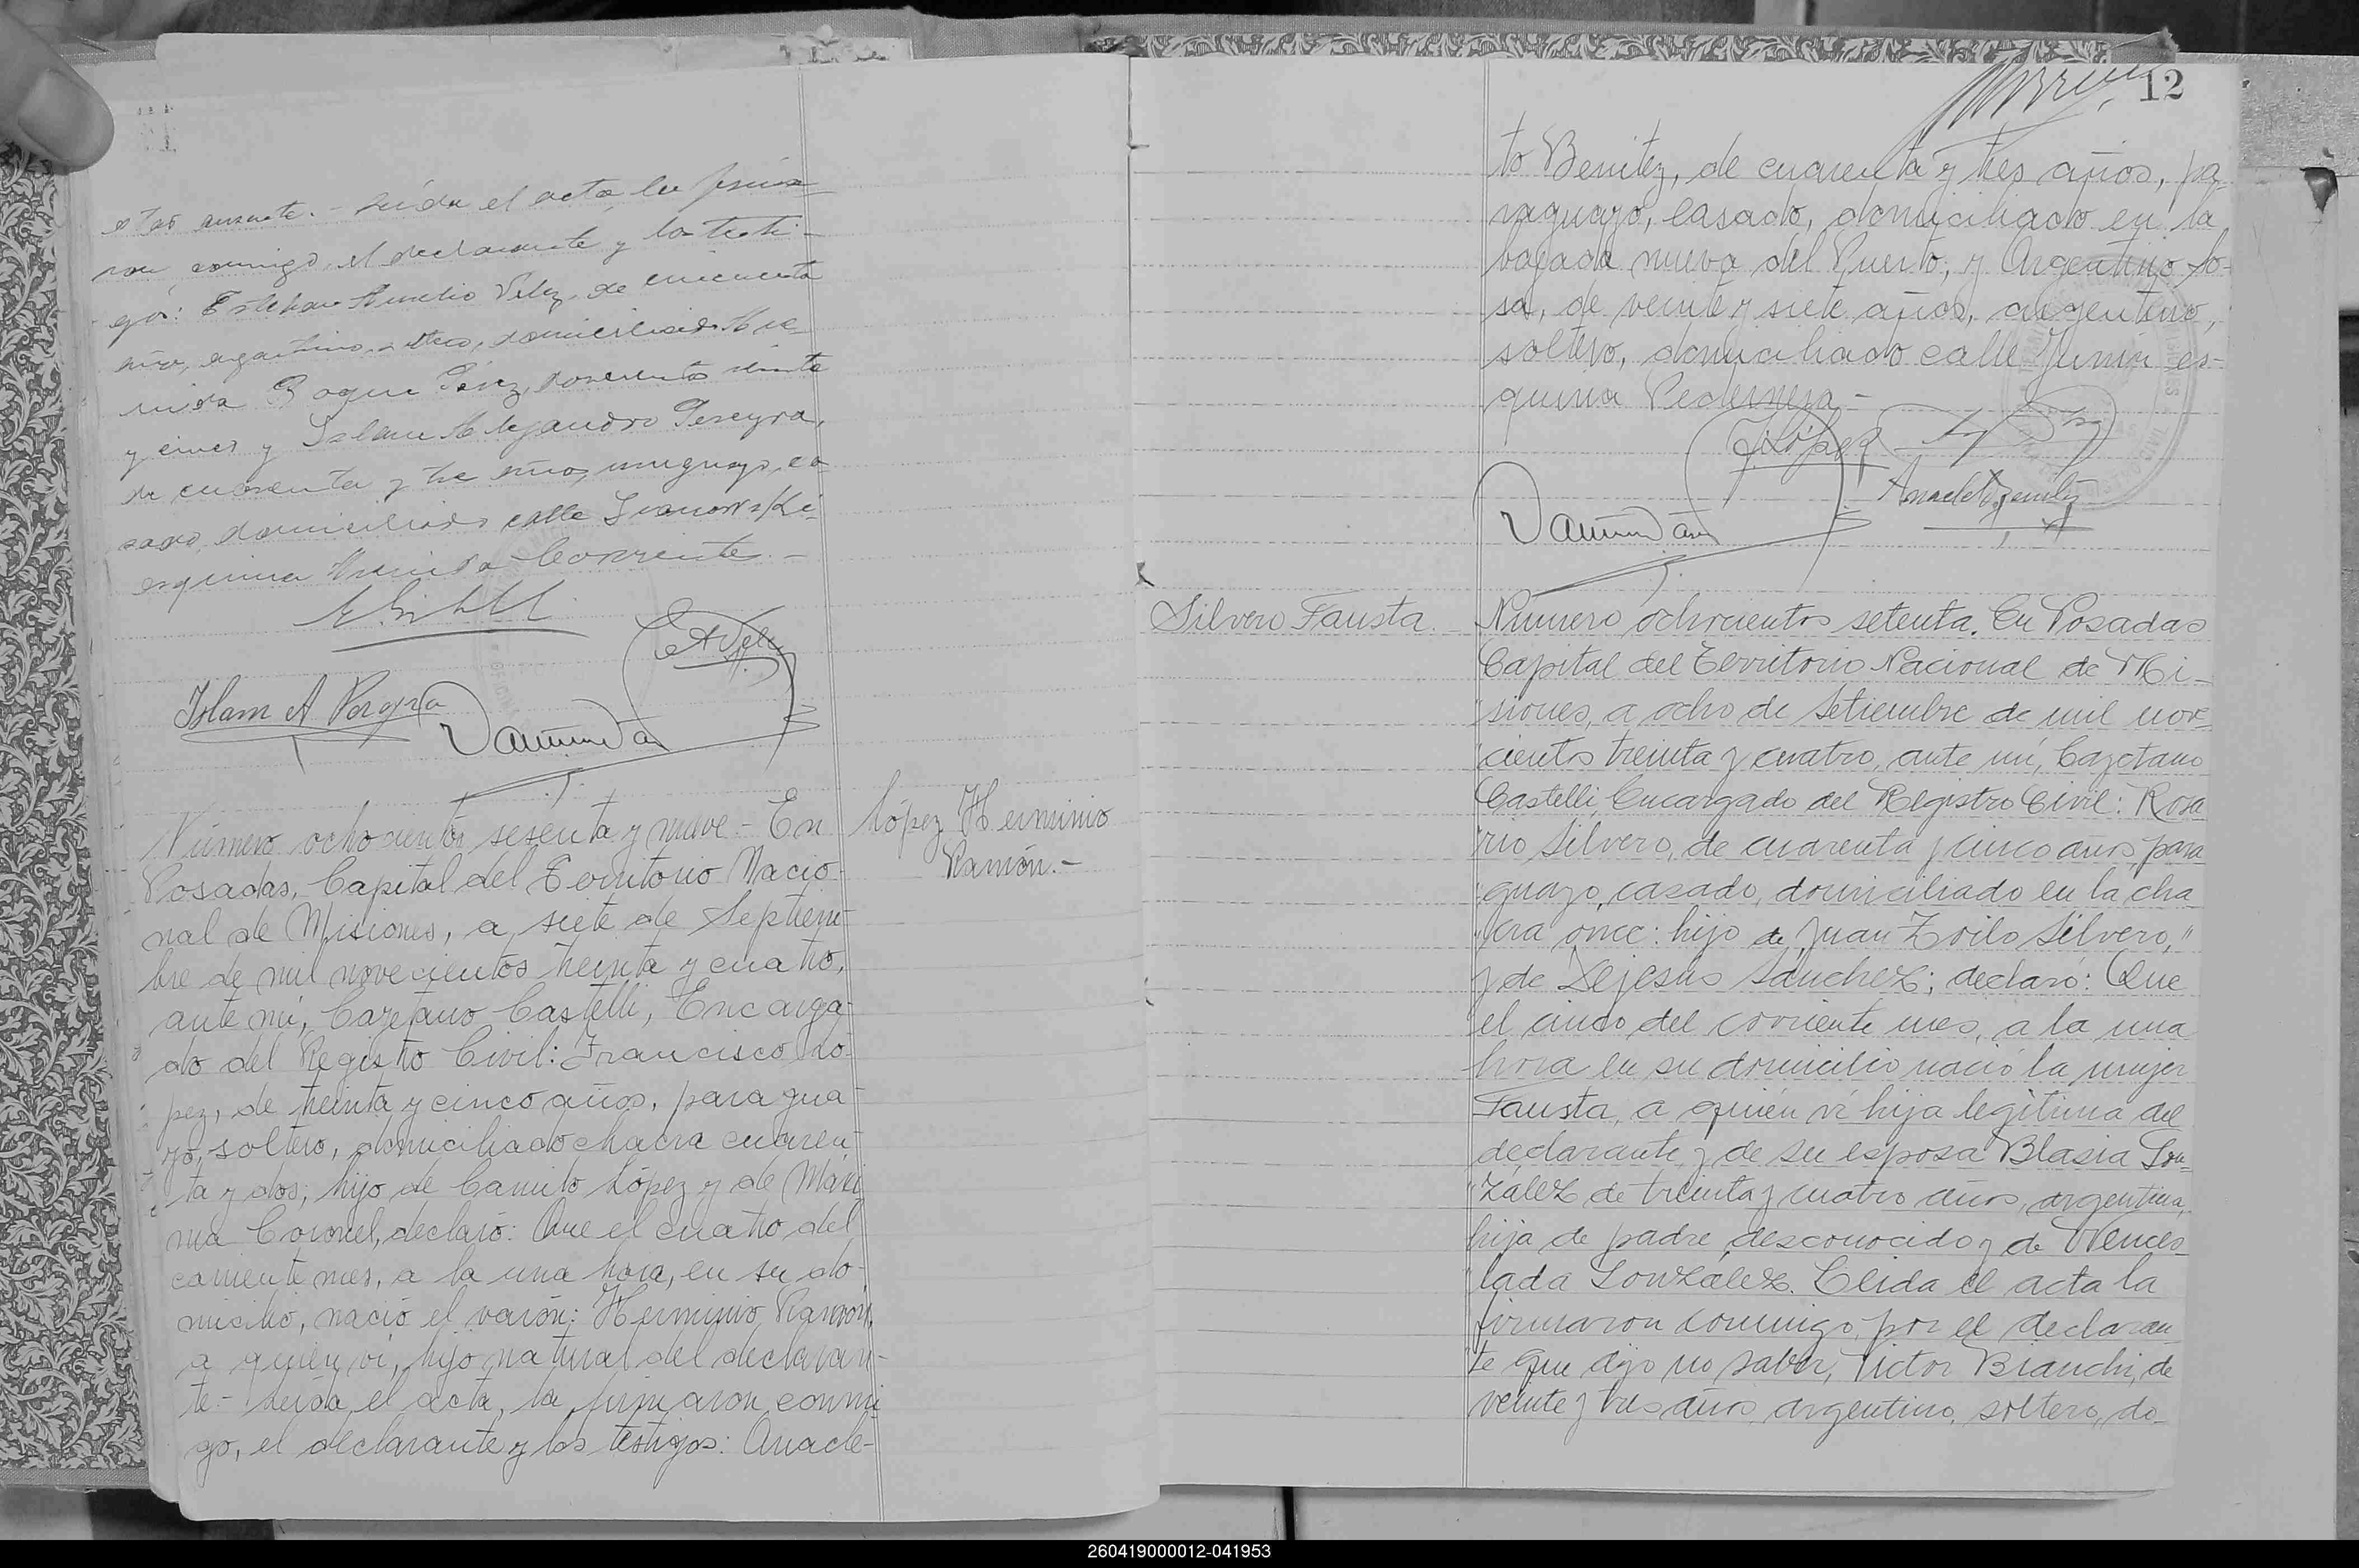 estar ausente. - Leída el acta, la firma-
ron conmigo, el declarante y los testi-
gos: Esteban Aurelio Velez, de cincuenta
años, argentino, soltero, domiciliado Ave-
nida Roque Pérez, doscientos veinte
y cinco y Islam Alejandro Pereyra,
de cuarenta y tres años, uruguayo, ca-
sado, domiciliado calle Ivanowski
esquina Avenida Corrientes. -
EAVelez
Islam A Pereyra
López Herminio
Ramón. -
Número ochocientos sesenta y nueve - En
Posadas, Capital del Territorio Nacio-
nal de Misiones, a siete de Septiem-
bre de mil novecientos treinta y cuatro,
ante mí, Cayetano Castelli, Encarga-
do del Registro Civil: Francisco Ló-
pez, de treinta y cinco años, paragua-
yo, soltero, domiciliado chacra cuaren-
ta y dos; hijo de Camilo López y de Máxi
ma Coronel, declaró: Que el cuatro del
corriente mes, a la una hora, en su do-
micilio, nació el varón: Herminio Ramón,
a quien ví, hijo natural del declaran-
te - Leída el acta, la firmaron conmi
go, el declarante y los testigos: Anacle-
12
to Benitez, de cuarenta y tres años, pa-
raguayo, casado, domiciliado en la
bajada nueva del Puerto, y Argentino So-
sa, de veinte y siete años, argentino,
soltero, domiciliado calle Junín es-
quina Pedernera -
F. López
Anacleto Benitez
Silvero Fausta.
Número ochocientos setenta. En Posadas
Capital del Territorio Nacional de Mi-
siones, a ocho de Setiembre de mil nov-
cientos treinta y cuatro, ante mí, Cayetano
Castelli, Encargado del Registro Civil: Rosa
rio Silvero, de cuarenta y cinco años, para
guayo, casado, domiciliado en la cha
cra once: hijo de Juan Zoilo Silvero,"
y de Dejesús Sánchez; declaró: Que
el cinco del corriente mes, a la una
hora en su domicilio nació la mujer
Fausta, a quien ví hija legítima del
declarante y de su esposa Blasia Gon-
zález de treinta y cuatro años, argentina,
hija de padre desconocido y de Wences
lada González. Leída el acta la
firmaron conmigo, por el declaran
te que dijo no saber, Victor Bianchi, de
veinte y tres años, argentino, soltero, do-
260419000012-041953